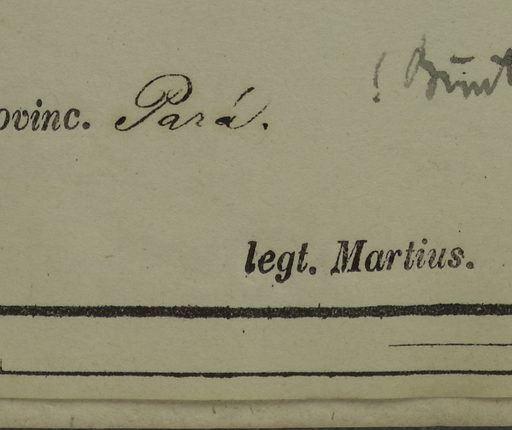 ovinc. Pará.
legt. Martius.